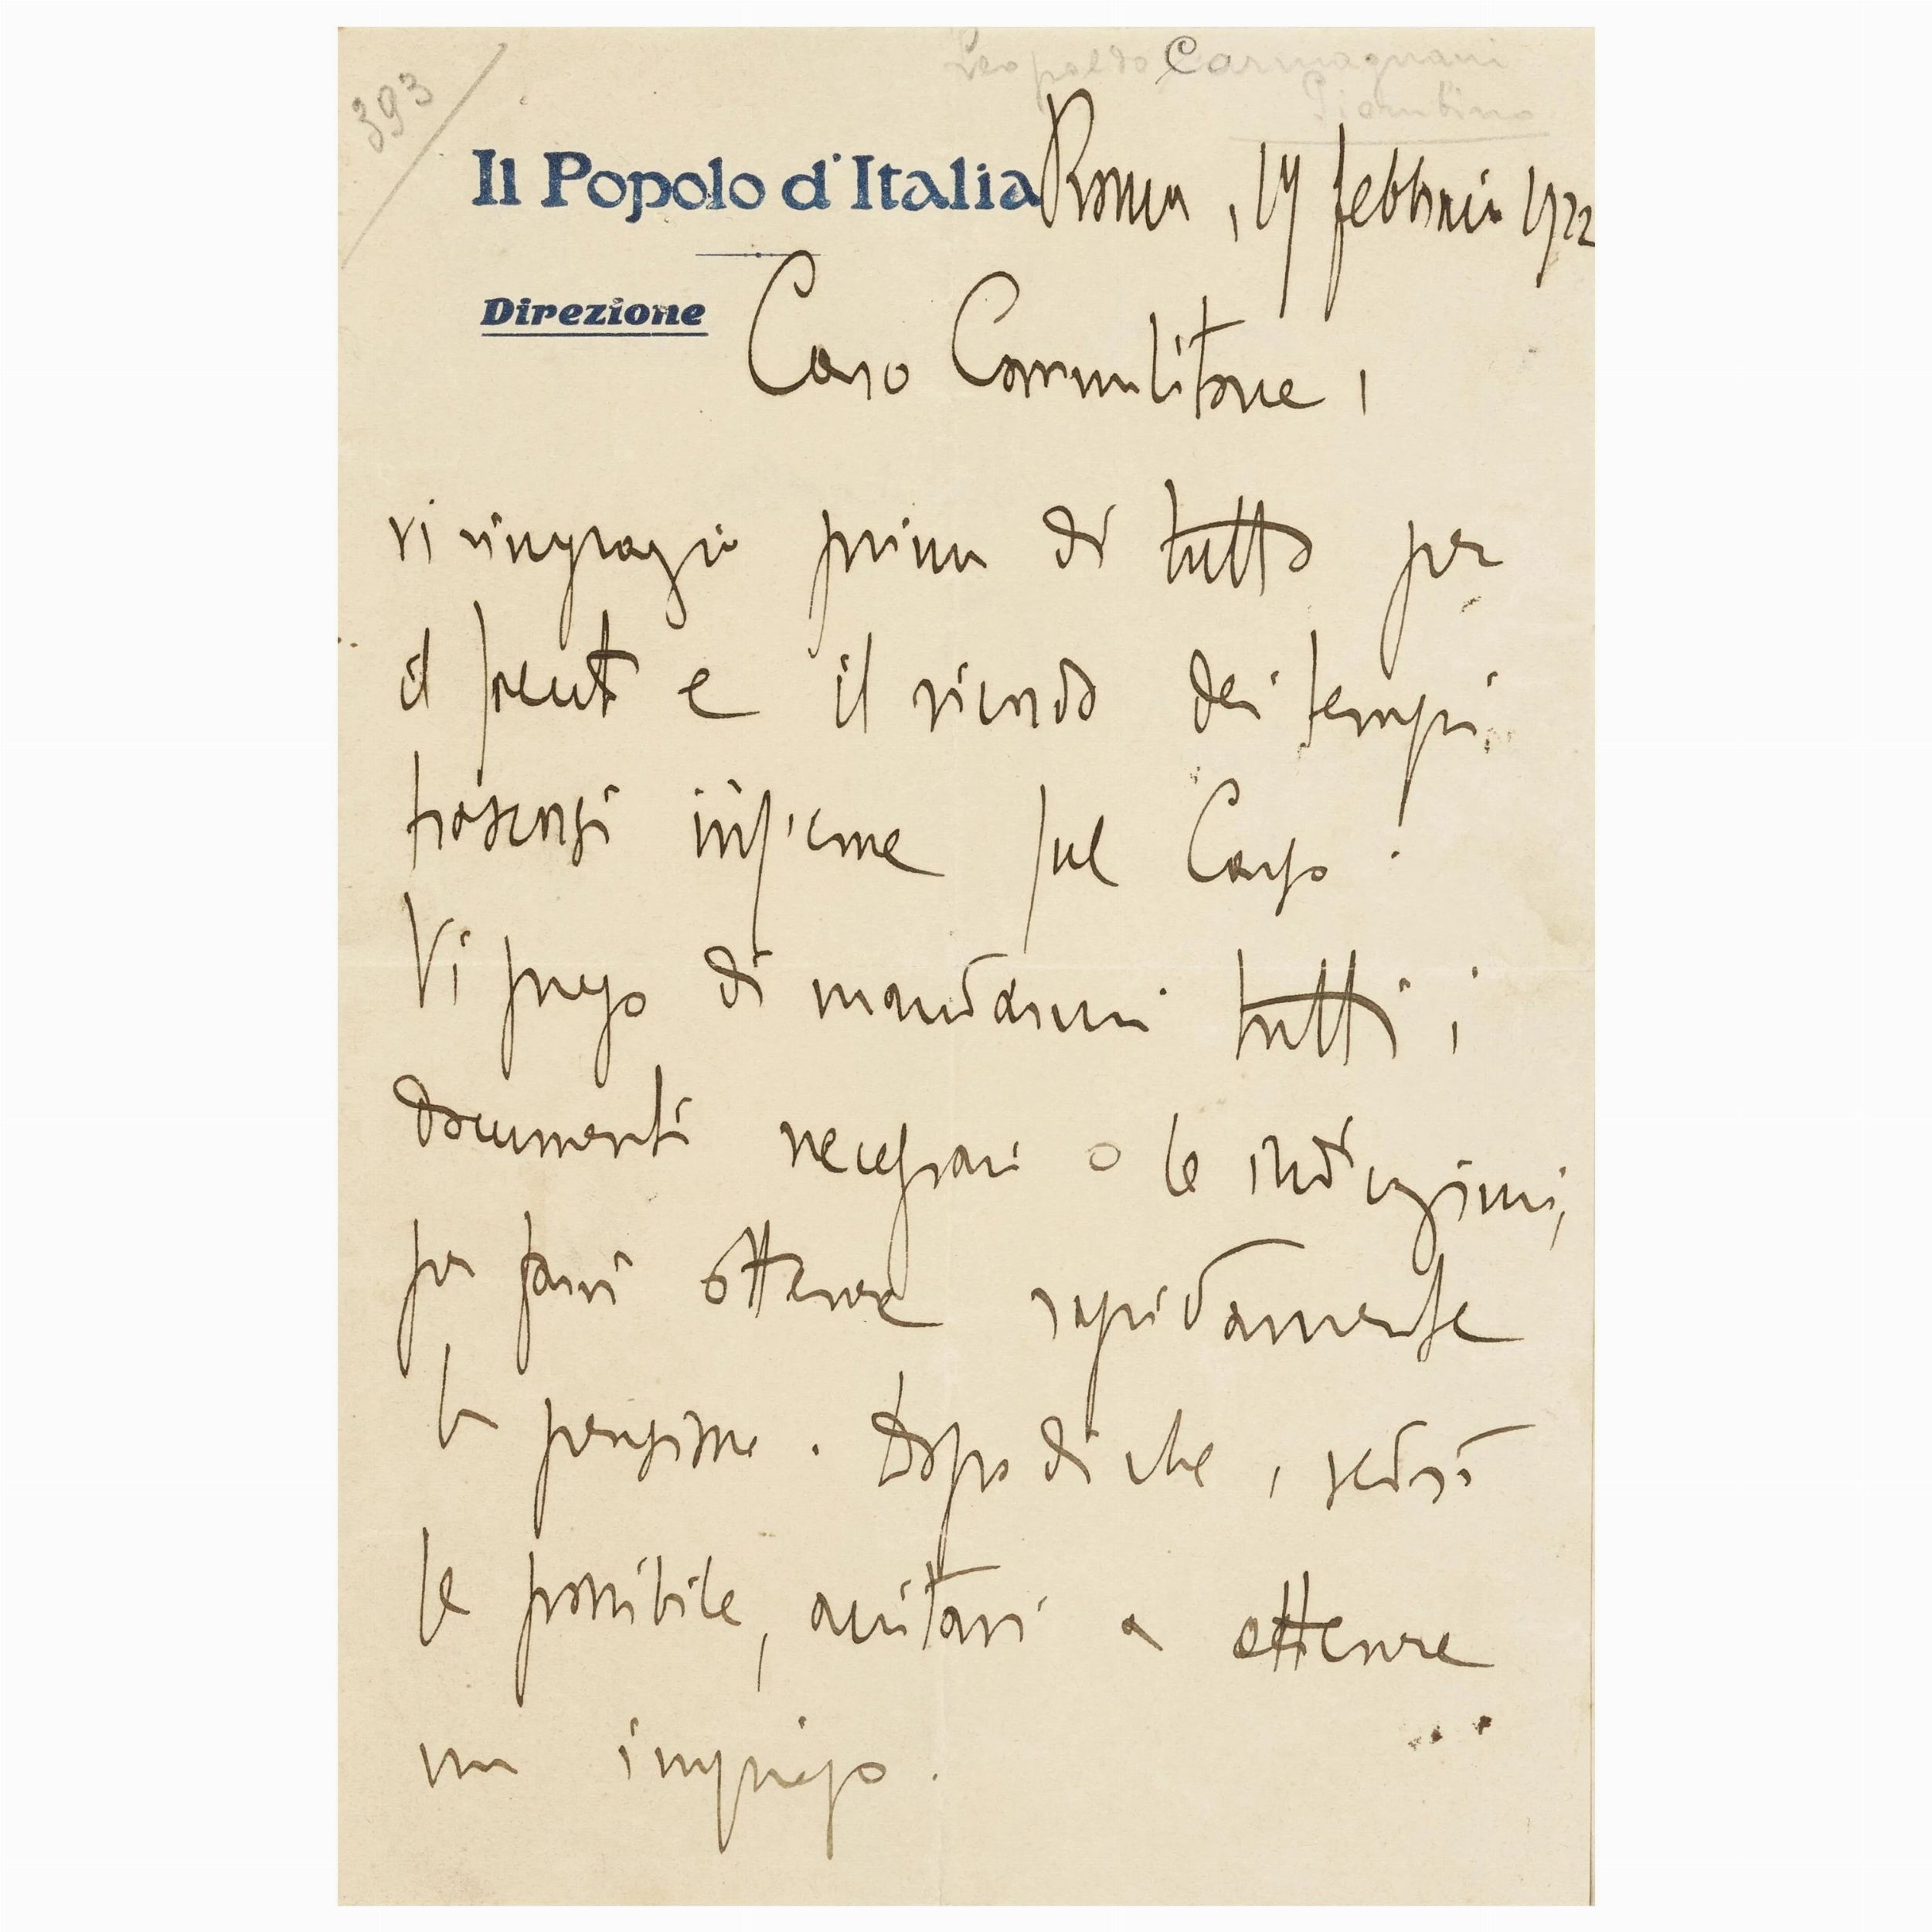 393
Leopoldo Carmagnani
Piombino
Il Popolo d'Italia
Roma, 17 febbraio 1922
Direzione
Caro Commilitone,
vi ringrazio prima di tutto per
il e il ricordo dei tempi
trascorsi insieme sul Carso.
Vi prego di mandarmi tutti i
documenti necessari o le indicazioni,
per farvi ottenere rapidamente
la pensione. Dopo di che, vedrò
se possibile, aiutarvi a ottenere
un impiego.